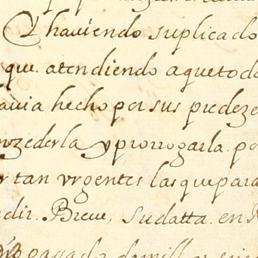 Y haviendo suplicado
que. atendiendo aquetoda
avia hecho por sus predeze
nzederla y prorrogarla. po
r tan vrgentes las que para
edir. Breve, su datta. en
mo passado de mill